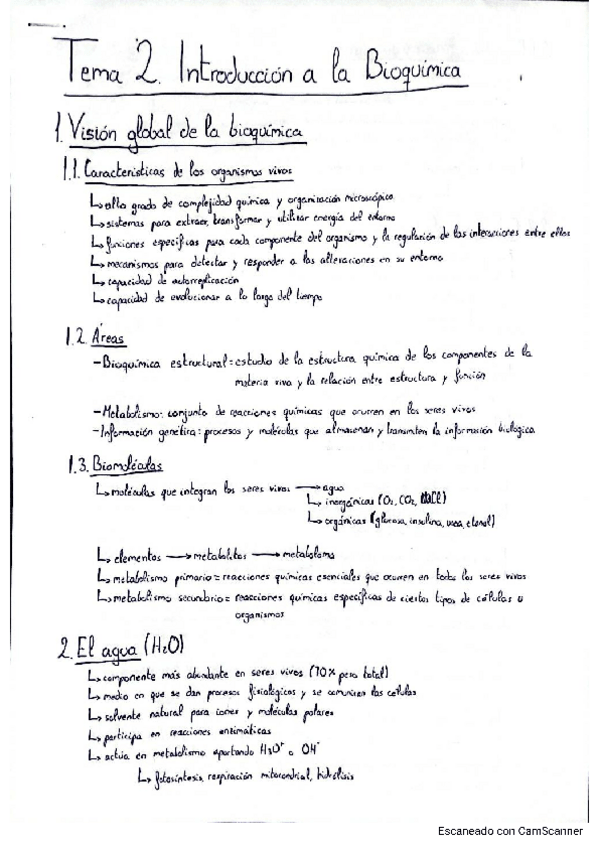 Tema 2. Introducción a la Bioquímica
1. Visión global de la bioquímica
1.1. Características de los organismos vivos
↳ alto grado de complejidad química y organización microscópica
↳ sistemas para extraer, transformar y utilizar energía del entorno
↳ funciones específicas para cada componente del organismo y la regulación de las interacciones entre ellos
↳ mecanismos para detectar y responder a las alteraciones en su entorno
↳ capacidad de autorreplicación
↳ capacidad de evolucionar a lo largo del tiempo
1.2. Áreas
- Bioquímica estructural: estudio de la estructura química de los componentes de la
materia viva y la relación entre estructura y función
- Metabolismo: conjunto de reacciones químicas que ocurren en los seres vivos
- Información genética: procesos y moléculas que almacenan y transmiten la información biológica
1.3. Biomoléculas
↳ moléculas que integran los seres vivos → agua
↳ inorgánicas (O₂, CO₂, NaCl)
↳ orgánicas (glucosa, insulina, urea, etanol)
↳ elementos → metabolitos → metaboloma
↳ metabolismo primario = reacciones químicas esenciales que ocurren en todos los seres vivos
↳ metabolismo secundario = reacciones químicas específicas de ciertos tipos de células u
organismos
2. El agua (H₂O)
↳ componente más abundante en seres vivos (70% peso total)
↳ medio en que se dan procesos fisiológicos y se comunican las células
↳ solvente natural para iones y moléculas polares
↳ participa en reacciones enzimáticas
↳ actúa en metabolismo aportando H₃O⁺ o OH⁻
↳ fotosíntesis, respiración mitocondrial, hidrólisis
Escaneado con CamScanner